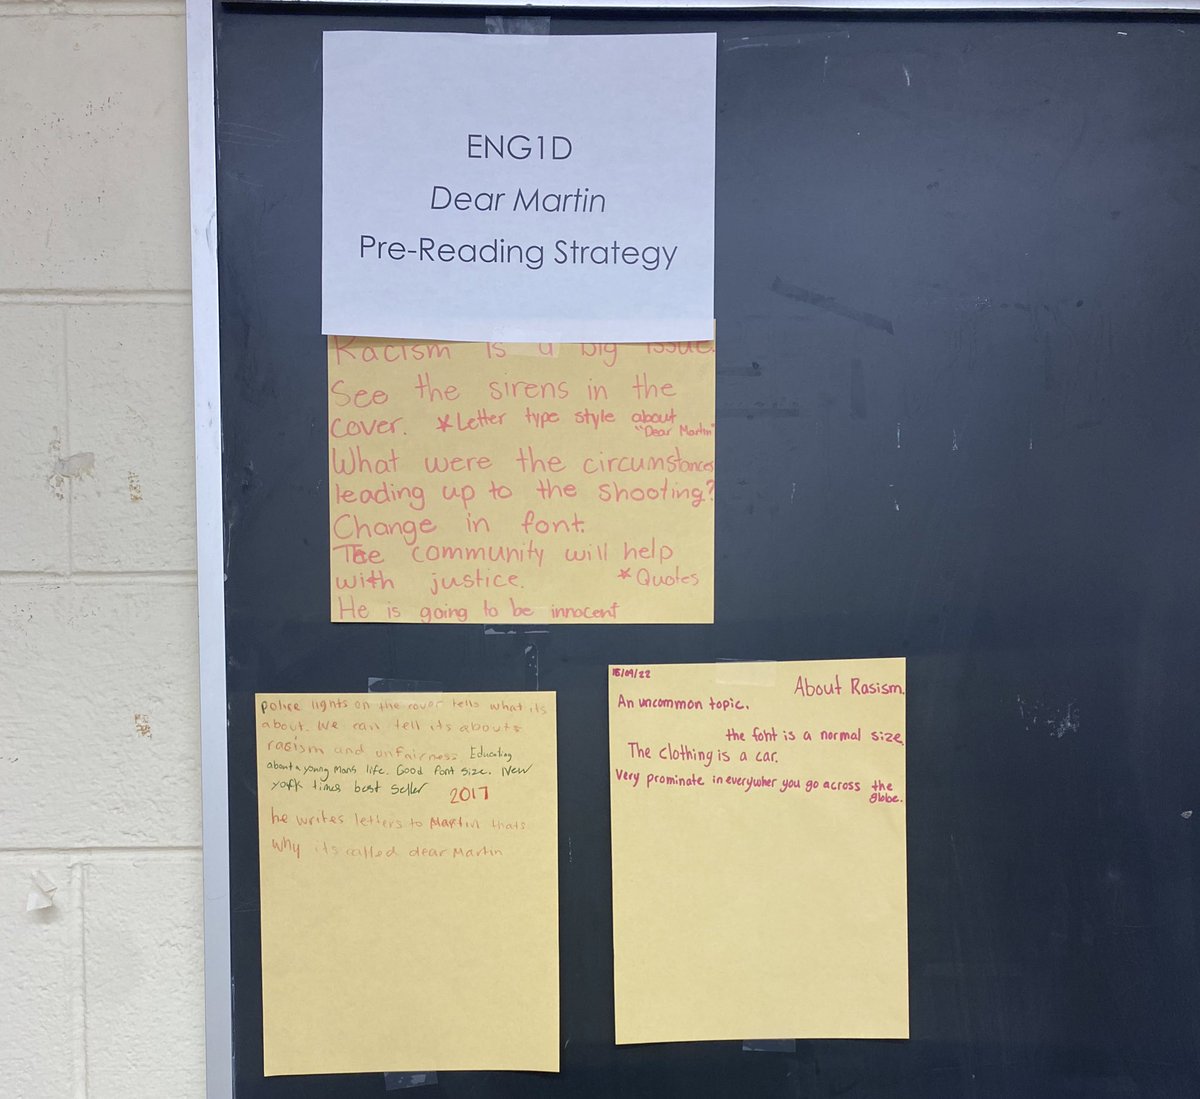 ENG1D
Dear Martin
Pre-Reading Strategy
Racism is a big issue.
See the sirens in the
cover. *Letter type style about
"Dear Martin"
What were the circumstances
leading up to the shooting?
Change in font.
The community will help
with justice. *Quotes
He is going to be innocent
police lights on the cover tells what its
about. We can tell its abouts
racism and unfairness Educating
about a young mans life. Good font size. New
york times best seller 2017
he writes letters to Martin thats
why its called dear Martin
15/09/22
About Rasism.
An uncommon topic.
the font is a normal size.
The clothing is a car.
Very prominate in everywher you go across the
globe.